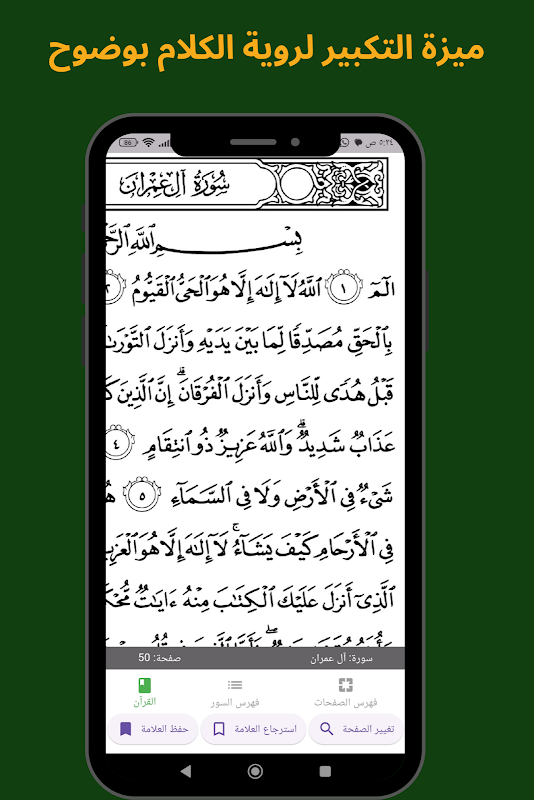 ميزة التكبير لروية الكلام بوضوح
86
٥:٢٤ ص
سُورَةُ آلِ عِمْرَانَ
بِسْمِ اللَّهِ الرَّحْ
الٓمٓ ١ اللَّهُ لَآ إِلَٰهَ إِلَّا هُوَ الْحَيُّ الْقَيُّومُ ٢
بِالْحَقِّ مُصَدِّقًا لِّمَا بَيْنَ يَدَيْهِ وَأَنزَلَ التَّوْرَ
قَبْلُ هُدًى لِّلنَّاسِ وَأَنزَلَ الْفُرْقَانَ ۗ إِنَّ الَّذِينَ كَ
عَذَابٌ شَدِيدٌ ۗ وَاللَّهُ عَزِيزٌ ذُو انتِقَامٍ ٤
شَيْءٌ فِي الْأَرْضِ وَلَا فِي السَّمَآءِ ٥ هُ
فِي الْأَرْحَامِ كَيْفَ يَشَآءُ ۚ لَآ إِلَٰهَ إِلَّا هُوَ الْعَزِي
الَّذِيٓ أَنزَلَ عَلَيْكَ الْكِتَابَ مِنْهُ ءَايَاتٌ مُّحْكَ
سورة: آل عمران
صفحة: 50
فهرس الصفحات
فهرس السور
القرآن
تغيير الصفحة
استرجاع العلامة
حفظ العلامة